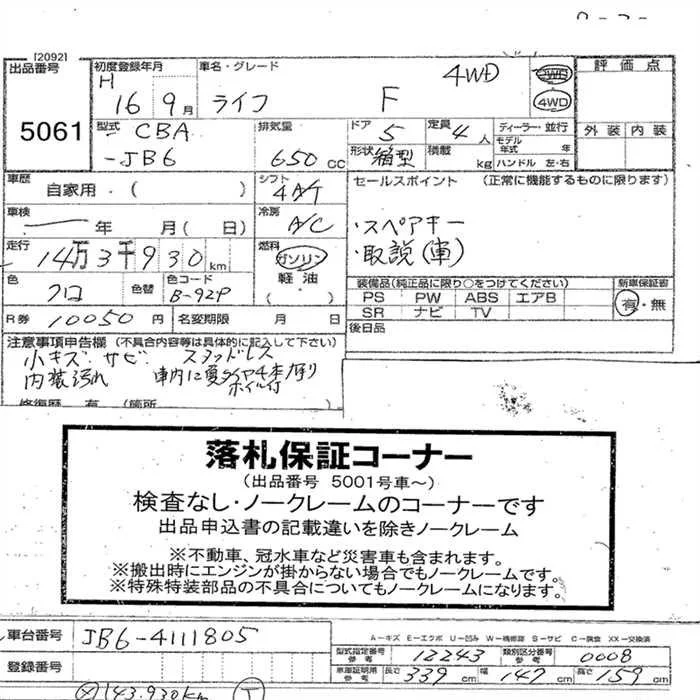 [2092]
出品番号 初度登録年月 車名・グレード 評価点
5061 H 16 9月 ライフ F 4WD 2WD 4WD
外装 内装
型式 CBA -JB6 排気量 650cc ドア 5 定員 4人 ディーラー・並行
形状 箱型 積載 kg モデル年式 年 ハンドル 左・右
車歴 自家用・( ) シフト 4A/T セールスポイント (正常に機能するものに限ります)
車検 年 月( 日) 冷房 A/C ・スペアキー
走行 14万3千930km 燃料 ガソリン 軽油 ( ) ・取説(車)
色 クロ 色替 色コード B-92P
装備品(純正品に限り○をつけてください) 新車保証書
PS PW ABS エアB 有・無
SR ナビ TV
R券 10050円 名変期限 月 日 後日品
注意事項申告欄 (不具合内容等は具体的に記入して下さい)
小キズ サビ スタッドレス
内装汚れ 車内に夏タイヤ4本有り
ホイル付
修復歴 有 (箇所
落札保証コーナー
(出品番号 5001号車~)
検査なし・ノークレームのコーナーです
出品申込書の記載違いを除きノークレーム
※不動車、冠水車など災害車も含まれます。
※搬出時にエンジンが掛からない場合でもノークレームです。
※特殊特装部品の不具合についてもノークレームになります。
車台番号 JB6-4111805
A-キズ E-エクボ U-凹み W-補修跡 S-サビ C-腐食 XX-交換済
型式指定番号 参考 12243 類別区分番号 参考 0008
登録番号 車庫証明用 参考 長さ 339cm 幅 147cm 高さ 159cm
143,930km